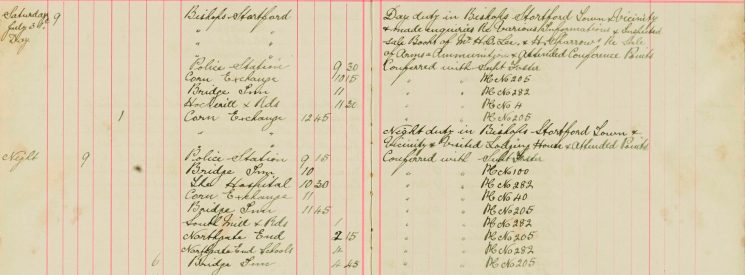 Saturday 9 Bishops Stortford Day duty in Bishops Stortford Town & Vicinity
July 3
Day " & made enquiries Re Various Informations & Inspected
" Sale Books of Mr H. & H. Sparrow Re Sale
" of Arms & Ammunition & Attended Conference Points
Police Station 9 30 Conferred with Supt Foster
Corn Exchange 10 15 " " PC No 205
Bridge Inn 11 " " PC No 282
Hockerill X Rds 11 20 " " PC No 4
1 Corn Exchange 12 45 " " PC No 205
" " Night duty in Bishops Stortford Town &
Vicinity & Visited Lodging House & Attended Points
Night 9 Police Station 9 15 Conferred with Supt Foster
Bridge Inn 10 " " PC No 100
The Hospital 10 30 " " PC No 282
Corn Exchange 11 " " PC No 40
Bridge Inn 11 45 " " PC No 205
South Mill X Rds 1 " " PC No 282
Northgate End 2 15 " " PC No 205
Northgate End Schools 4 " " PC No 282
6 Bridge Inn 4 45 " " PC No 205